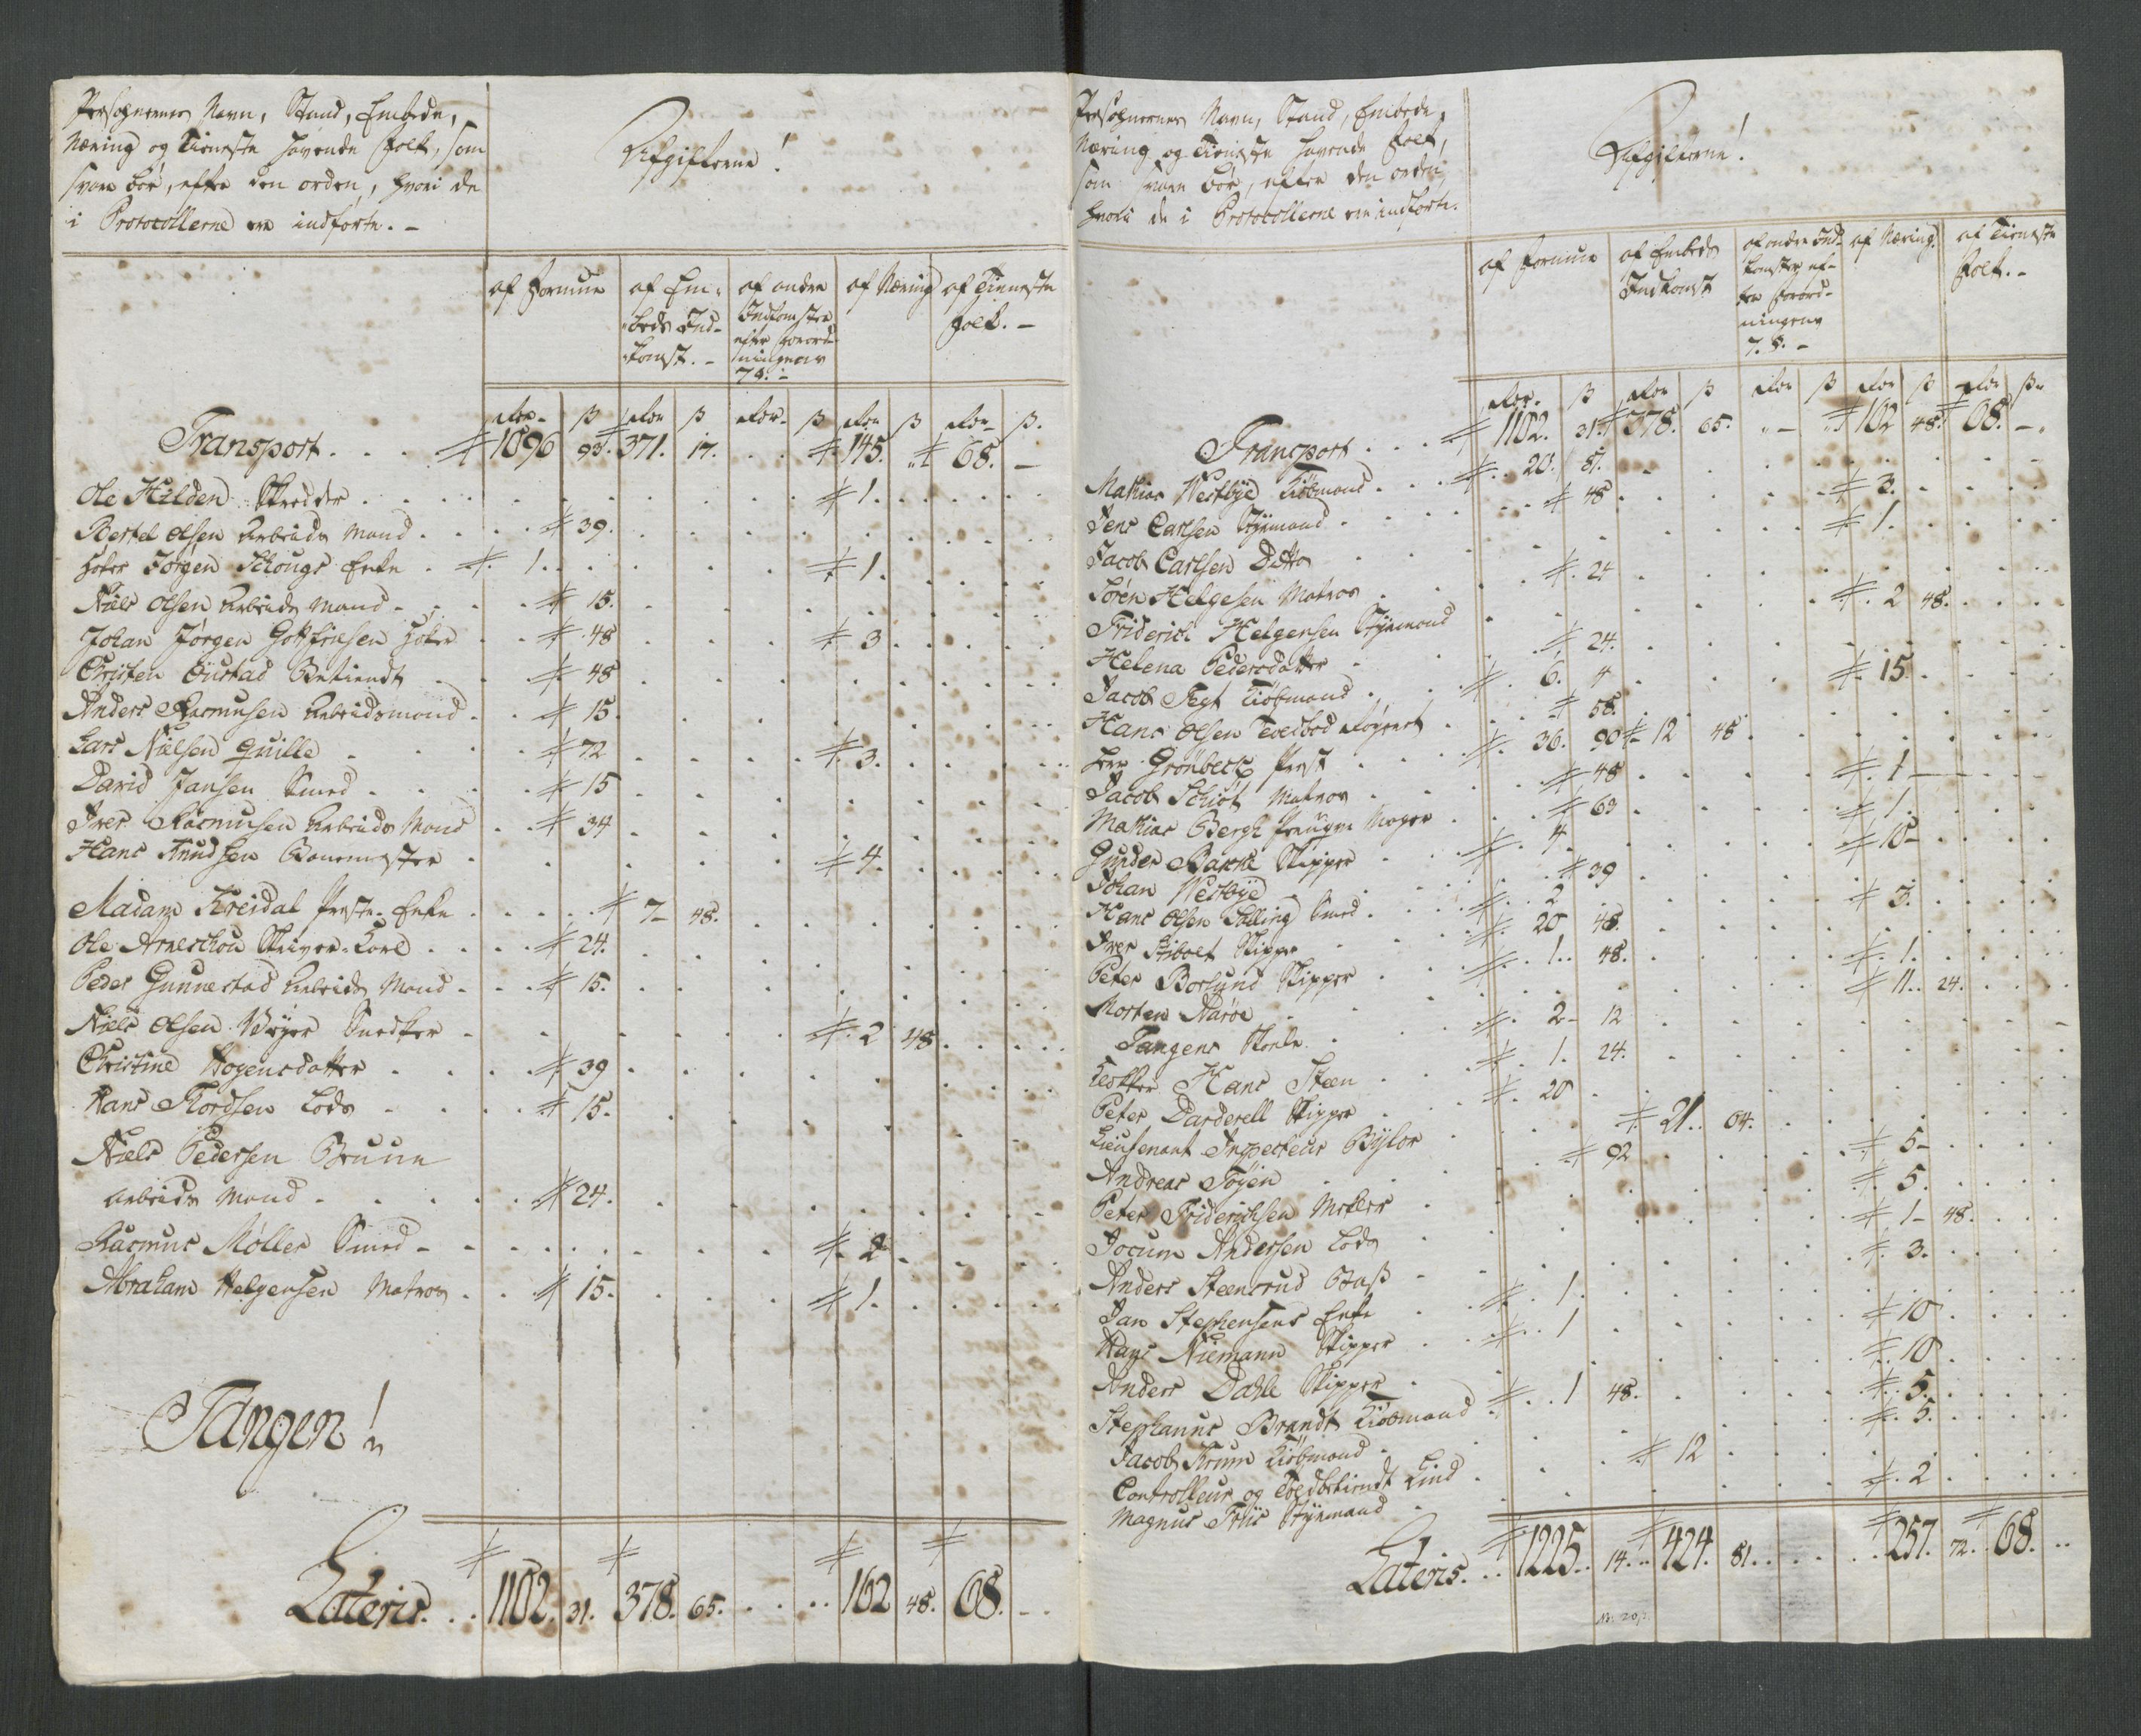 Persohnernes Navn, Stand, Embede,
Næring og Tieneste havende Folk, som
svare bør, efter den orden, hvori de
i Protocollerne ere indførte. -
Afgifterne!
af Formue
af Em-
beds Ind-
komst. -
af andre
Indkomster
efter Forord-
ningens
7 §. -
af Næring
af Tieneste
Folk. -
rdr. ß rdr ß rdr. ß rdr ß rdr. ß.
Transport . . . 1096 93. 371. 17. . . 145. " 68. -
Ole Hilden Skredder . . . 1.
Bertel Olsen Arbeids Mand . . . 39.
Jørgen Schougs Enke . 1. . . 1.
Niels Olsen Arbeids Mand . . . 15.
Johan Jørgen Gottfriesen . . 48 . . 3
Christen Öustad Betiendt . . 48
Anders Rasmusen Arbeidsmand . . 15.
Lars Nielsen Quille . . 72 . . 3.
David Jansen Smed . . . 15
Iver Rasmusen Arbeids Mand . . 34
Hans Knudsen . . 4.
Madam Kreidal Præste-Enke . . . 7- 48.
Ole Arneschou Skriver-Karl . . . 24.
Peder Gunnestad Arbeids Mand . . 15.
Niels Olsen Wager Snedker . . 2 48
Christine Hogensdatter . . . 39
Hans Tordsen Lods . . . 15.
Niels Pedersen Bruun
Arbeids Mand . . . 24.
Rasmus Møller Smed . . 2
Abraham Helgensen Matros . . 15. . . 1.
Tangen!
Lateris. . . 1102. 31. 378. 65. . . . 162 48. 68. . .
Persohnernes Navn, Stand, Embede,
Næring og Tieneste havende Folk,
som svare bør, efter den orden,
hvori de i Protocollerne ere indførte.
Afgifterne!
af Formue
af Embeds
Indkomst
af andre Ind-
komster ef-
ter Forord-
ningens
7. §. -
af Næring.
af Tieneste
Folk. -
rdr. ß rdr ß rdr ß rdr ß rdr ß.
Transport . . . 1102. 31. 378. 65. " - " 162 48. 68. -
Mathias Westbye Kiøbmand . . 20. 81.
Jens Carlsen Styrmand . . . 48 . . 3.
Jacob Carlsen Ditto . . 1.
Søren Helgesen Matros . . 24
Friderich Helgensen Styrmand . . 2 48.
Helena Pedersdatter . . 24.
Jacob Fegt Kiøbmand . . 6. 4 . . 15.
Hans Olsen . . 58.
Herr Grønbeck Prest . . 36. 90 12 48
Jacob Schiøt Matros . . 48 . . 1 -
Mathias Bergh . . 63 . . 1.
Gunder Barth Skipper . . 4 . . 10-
Johan Westbye . . 39
Hans Olsen Salling Smed . . 2 . . 3.
Iver Stibolt Skipper . . 20 48.
Peter Borlund Skipper . . 1. 48. . . 1.
Morten Aarøe . . 11. 24.
Tangens Skole . . 2- 12
Klokker Hans Steen . . 1. 24.
Peter Darderell Skipper . . 20
Lieutenant Inspecteur Bylov . . 21. 64.
Andreas Tøyen . . 92 . . 5-
Peter Friderichsen Mekler . . 5.
Jocum Andersen Lods . . 1- 48.
Anders Steensrud . . 3.
Jan Stephensens Enke . . 1.
Hans Niemann Skipper . . 1 . . 10
Anders Dahle Skipper . . 10
Stephanus Brandt Kiøbmand . . 1 48. . . 5.
Jacob Krum Kiøbmand . . 5.
Controlleur og Toldbetiendt Lind . . 12
Magnus Friis Styrmand . . 2
Lateris. . . 1225. 14. 424. 81. . . . 257. 72. 68. . .